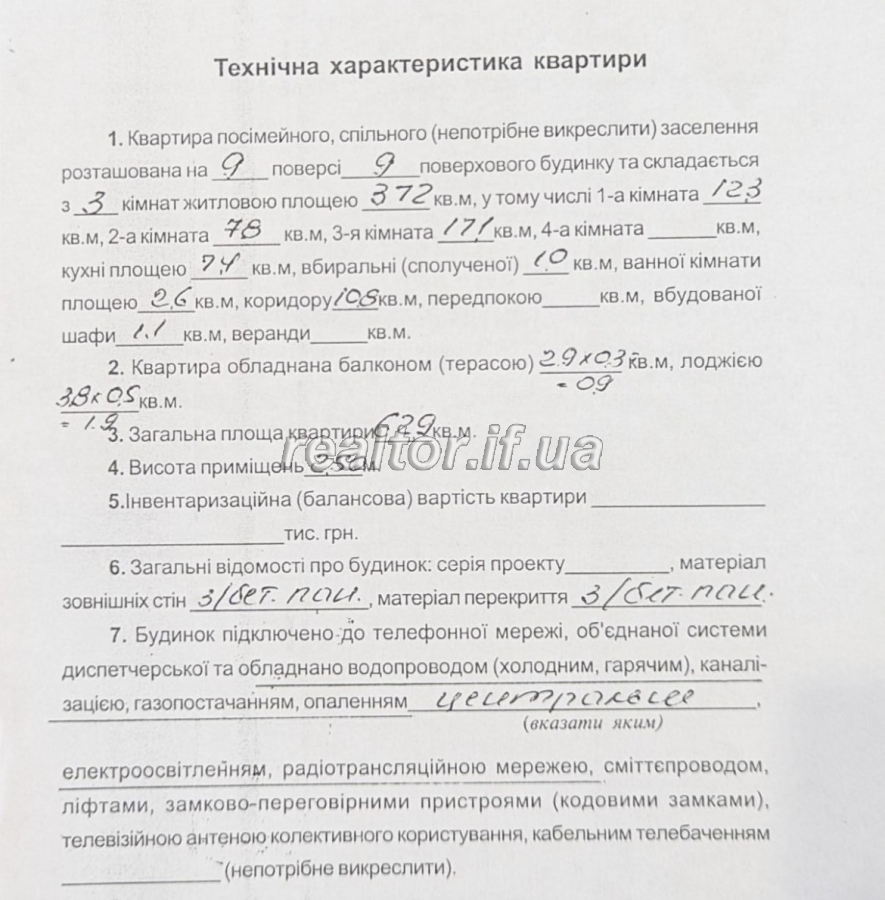 Технічна характеристика квартири
1. Квартира посімейного, спільного (непотрібне викреслити) заселення
розташована на 9 поверсі 9 поверхового будинку та складається
з 3 кімнат житловою площею 37,2 кв.м, у тому числі 1-а кімната 12,3
кв.м, 2-а кімната 7,8 кв.м, 3-я кімната 17,1 кв.м, 4-а кімната ______ кв.м,
кухні площею 7,4 кв.м, вбиральні (сполученої) 1,0 кв.м, ванної кімнати
площею 2,6 кв.м, коридору 10,8 кв.м, передпокою_____кв.м, вбудованої
шафи 1,1 кв.м, веранди_____кв.м.
2. Квартира обладнана балконом (терасою) 2,9 x 0,3 кв.м, лоджією
= 0,9
3,8 x 0,5 кв.м.
= 1,9
3. Загальна площа квартири 62,9 кв.м.
realtor.if.ua
4. Висота приміщень 2,50 м.
5.Інвентаризаційна (балансова) вартість квартири ______________
__________________тис. грн.
6. Загальні відомості про будинок: серія проекту_________, матеріал
зовнішніх стін з/бет. пан., матеріал перекриття з/бет. пан.
7. Будинок підключено до телефонної мережі, об'єднаної системи
диспетчерської та обладнано водопроводом (холодним, гарячим), каналі-
зацією, газопостачанням, опаленням центральне,
(вказати яким)
електроосвітленням, радіотрансляційною мережею, сміттєпроводом,
ліфтами, замково-переговірними пристроями (кодовими замками),
телевізійною антеною колективного користування, кабельним телебаченням
_____________ (непотрібне викреслити).